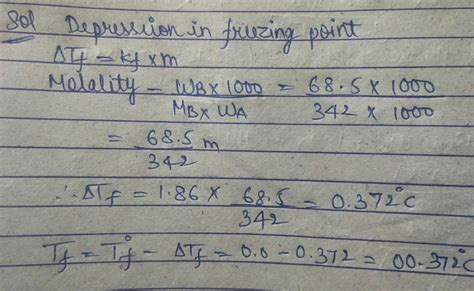 Sol Depression in friezing point
ΔTf = Kf × m
Molality = WB × 1000 / MB × WA = 68.5 × 1000 / 342 × 1000
= 68.5 / 342 m
∴ ΔTf = 1.86 × 68.5 / 342 = 0.372°C
Tf = T°f - ΔTf = 0.0 - 0.372 = 00.372°C